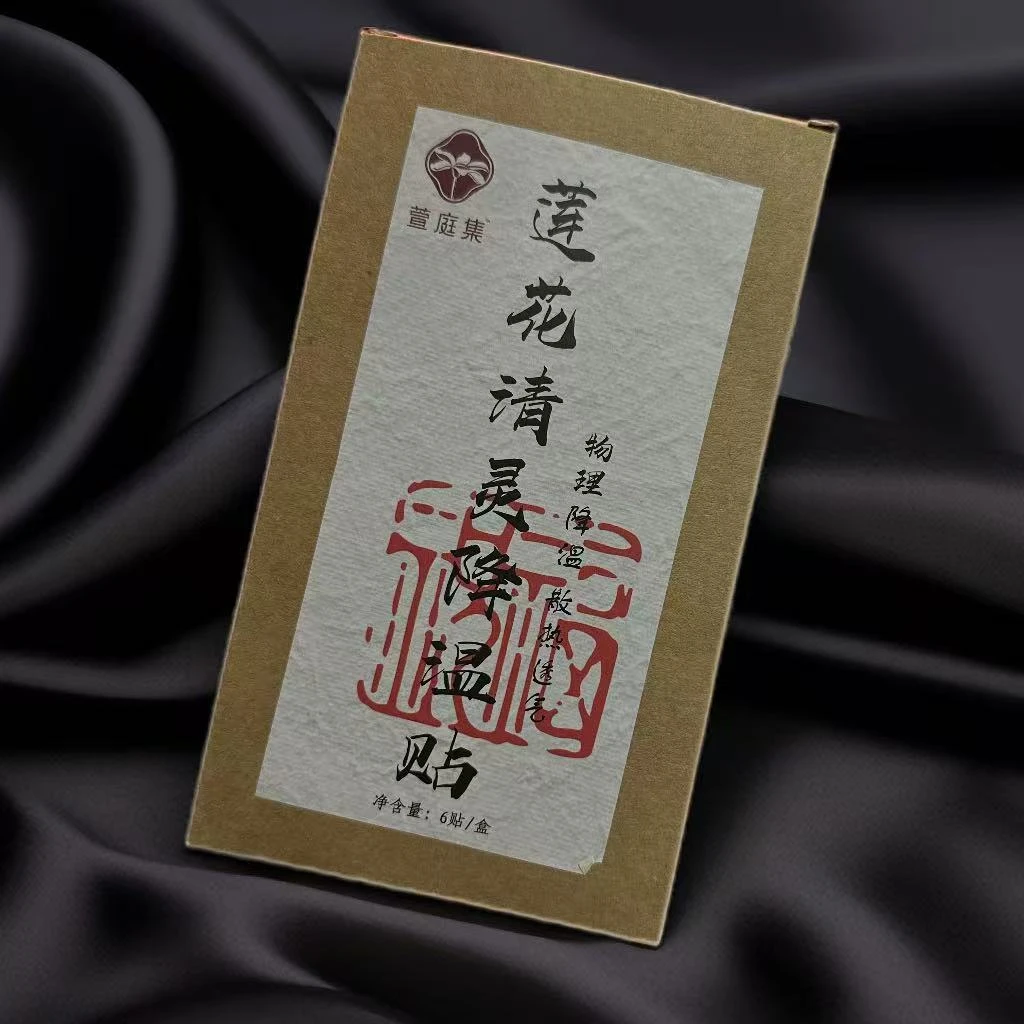 萱庭集
莲花清灵降温贴
物理降温 散热透气
净含量：6贴/盒